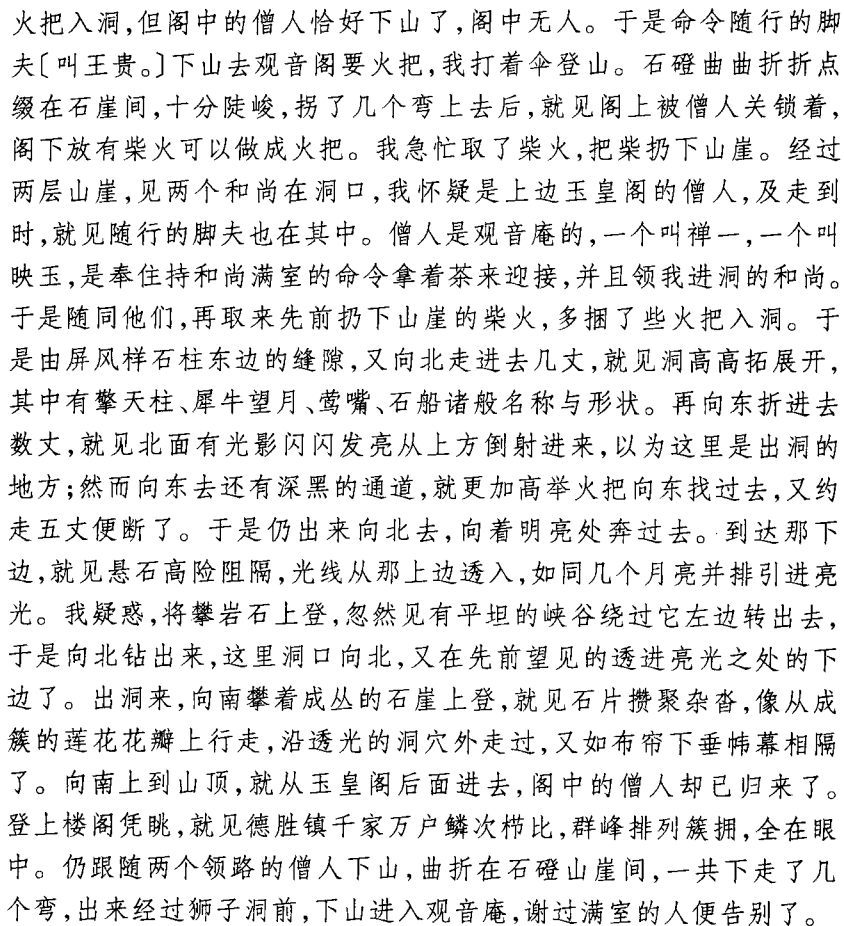 火把入洞,但阁中的僧人恰好下山了,阁中无人。于是命令随行的脚
夫〔叫王贵。〕下山去观音阁要火把,我打着伞登山。石磴曲曲折折点
缀在石崖间,十分陡峻,拐了几个弯上去后,就见阁上被僧人关锁着,
阁下放有柴火可以做成火把。我急忙取了柴火,把柴扔下山崖。经过
两层山崖,见两个和尚在洞口,我怀疑是上边玉皇阁的僧人,及走到
时,就见随行的脚夫也在其中。僧人是观音庵的,一个叫禅一,一个叫
映玉,是奉住持和尚满室的命令拿着茶来迎接,并且领我进洞的和尚。
于是随同他们,再取来先前扔下山崖的柴火,多捆了些火把入洞。于
是由屏风样石柱东边的缝隙,又向北走进去几丈,就见洞高高拓展开,
其中有擎天柱、犀牛望月、莺嘴、石船诸般名称与形状。再向东折进去
数丈,就见北面有光影闪闪发亮从上方倒射进来,以为这里是出洞的
地方;然而向东去还有深黑的通道,就更加高举火把向东找过去,又约
走五丈便断了。于是仍出来向北去,向着明亮处奔过去。到达那下
边,就见悬石高险阻隔,光线从那上边透入,如同几个月亮并排引进亮
光。我疑惑,将攀岩石上登,忽然见有平坦的峡谷绕过它左边转出去,
于是向北钻出来,这里洞口向北,又在先前望见的透进亮光之处的下
边了。出洞来,向南攀着成丛的石崖上登,就见石片攒聚杂沓,像从成
簇的莲花花瓣上行走,沿透光的洞穴外走过,又如布帘下垂帏幕相隔
了。向南上到山顶,就从玉皇阁后面进去,阁中的僧人却已归来了。
登上楼阁凭眺,就见德胜镇千家万户鳞次栉比,群峰排列簇拥,全在眼
中。仍跟随两个领路的僧人下山,曲折在石磴山崖间,一共下走了几
个弯,出来经过狮子洞前,下山进入观音庵,谢过满室的人便告别了。